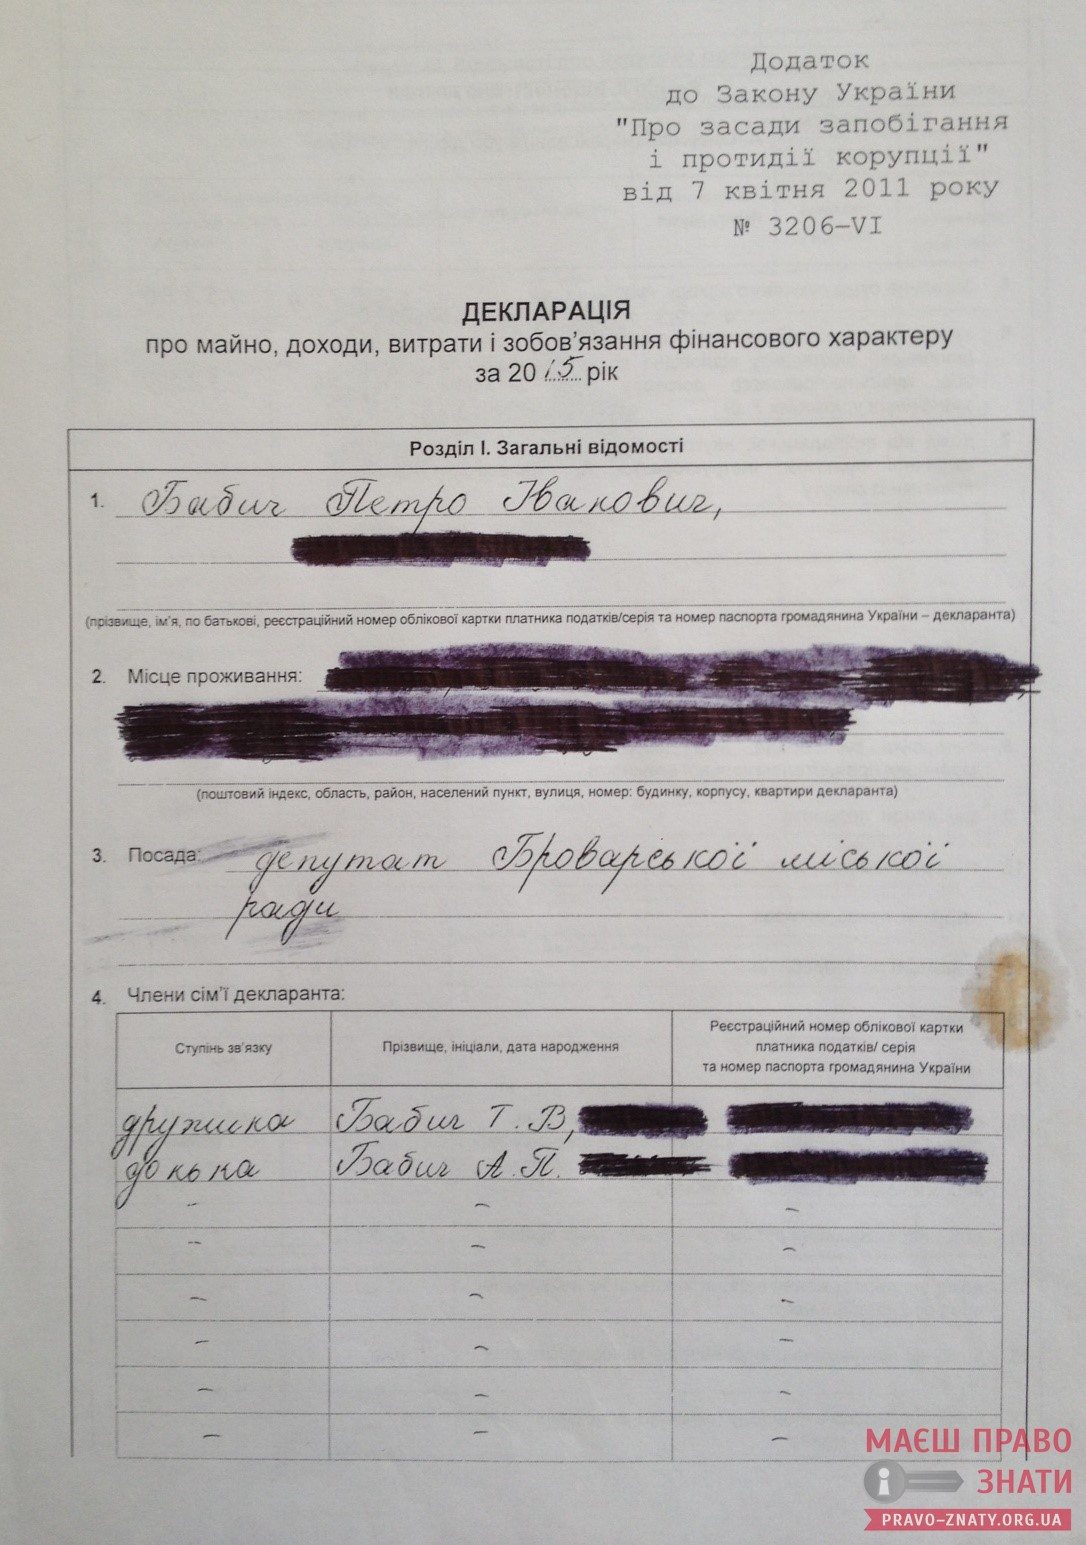 Додаток
до Закону України
"Про засади запобігання
і протидії корупції"
від 7 квітня 2011 року
№ 3206-VI
ДЕКЛАРАЦІЯ
про майно, доходи, витрати і зобов'язання фінансового характеру
за 2015 рік
Розділ І. Загальні відомості
1. Бабич Петро Іванович,
(прізвище, ім'я, по батькові, реєстраційний номер облікової картки платника податків/серія та номер паспорта громадянина України – декларанта)
2. Місце проживання:
(поштовий індекс, область, район, населений пункт, вулиця, номер: будинку, корпусу, квартири декларанта)
3. Посада: депутат Броварської міської
ради
4. Члени сім'ї декларанта:
Ступінь зв'язку Прізвище, ініціали, дата народження Реєстраційний номер облікової картки
платника податків/ серія
та номер паспорта громадянина України
дружина Бабич Т. В,
донька Бабич А. П.
– – –
– – –
– – –
– – –
– – –
– – –
МАЄШ ПРАВО
ЗНАТИ
PRAVO-ZNATY.ORG.UA